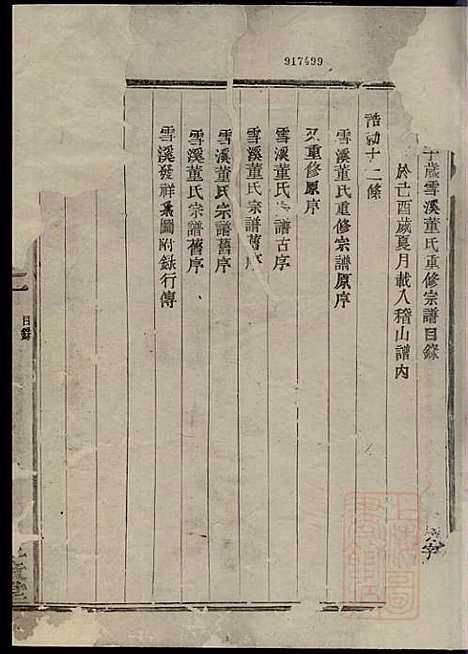 917499
于歲雪溪董氏重修宗譜目錄
於己酉歲夏月載入稽山譜內
誥勅十二條
雪溪董氏重修宗譜原序
又重修原序
雪溪董氏 譜古序
雪溪董氏宗譜舊序
雪溪董氏宗譜舊序
雪溪董氏宗譜舊序
雪溪發祥系圖附錄行傳
目錄